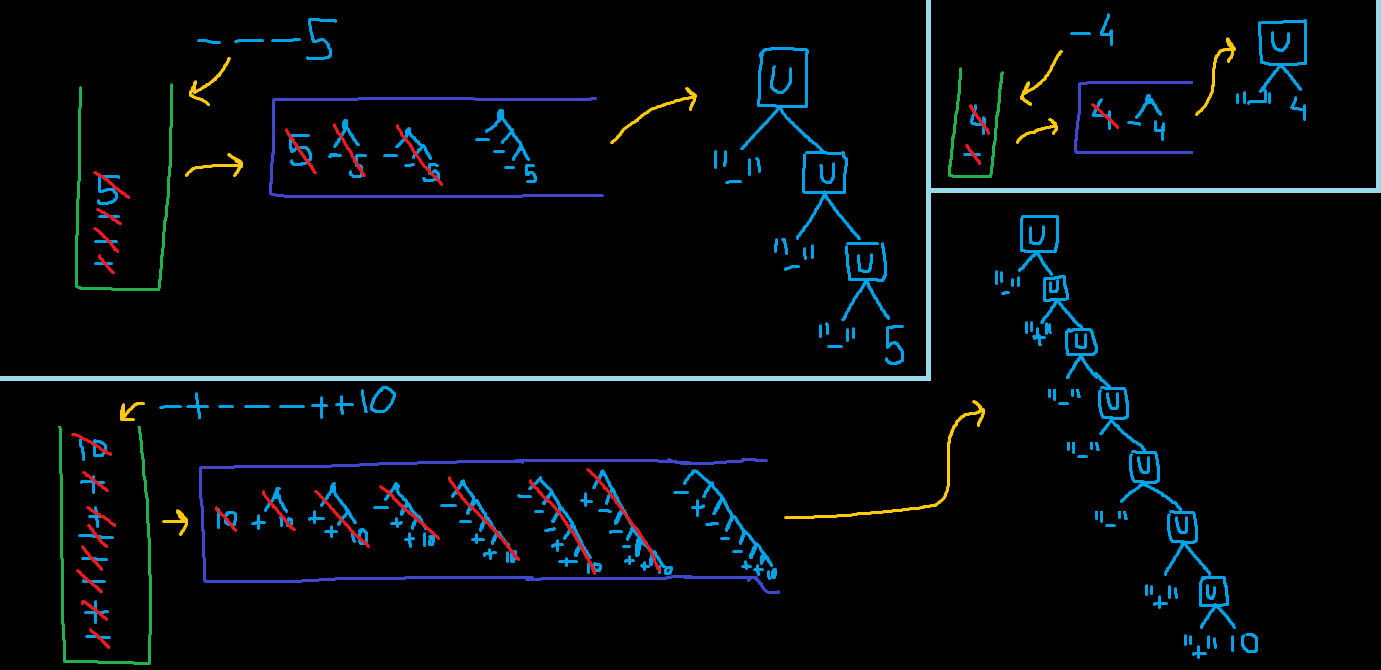 ---5
5
-
-
-
5 -5 --5 ---5
U
"-" U
"-" U
"-" 5
-4
4
-
4 -4
U
"-" 4
-+---++10
10
+
+
-
-
-
+
-
10 +10 ++10 -++10 --++10 ---++10 +---++10 -+---++10
U
"-" U
"+" U
"-" U
"-" U
"-" U
"+" U
"+" 10